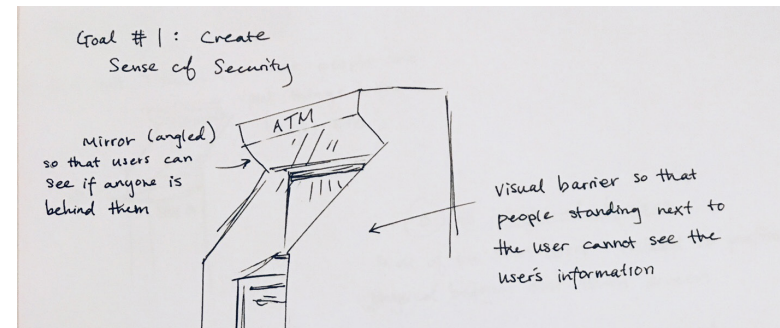 Goal #1: Create
Sense of Security
ATM
Mirror (angled)
so that users can
see if anyone is
behind them
Visual barrier so that
people standing next to
the user cannot see the
user's information